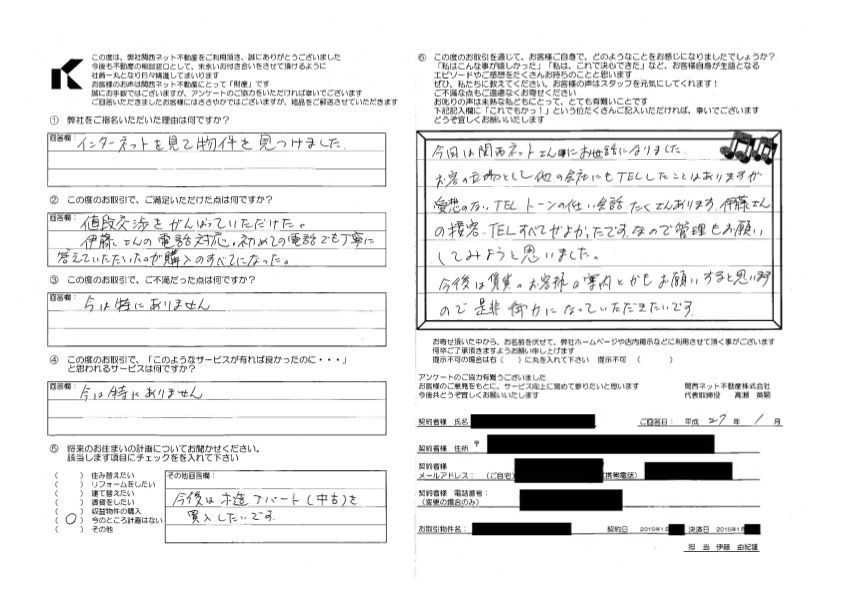 この度は、弊社関西ネット不動産をご利用頂き、誠にありがとうございました
今後も不動産の相談窓口として、末永いお付き合いをさせて頂けるように
社員一丸となり日々精進してまいります
お客様のお声は関西ネット不動産にとって「財産」です
誠にお手数ではございますが、アンケートのご協力をいただければ幸いでございます
ご回答いただきましたお客様にはささやかではございますが、粗品をご郵送させていただきます
① 弊社をご指名いただいた理由は何ですか？
回答欄：
インターネットを見て物件を見つけました.
② この度のお取引で、ご満足いただけた点は何ですか？
回答欄：
値段交渉をがんばっていただけた。
伊藤さんの電話対応。初めての電話でも丁寧に
答えていただいたのが購入のすべてになった。
③ この度のお取引で、ご不満だった点は何ですか？
回答欄：
今は特にありません
④ この度のお取引で、「このようなサービスが有れば良かったのに・・・」
と思われるサービスは何ですか？
回答欄：
今は特にありません
⑤ 将来のお住まいの計画についてお聞かせください。
該当します項目にチェックをを入れて下さい
（　）住み替えたい
（　）リフォームをしたい
（　）建て替えたい
（　）賃貸をしたい
（　）収益物件の購入
（○）今のところ計画はない
（　）その他
その他回答欄：
今後は アパート(中古)を
買入したいです.
⑥ この度のお取引を通じて、お客様ご自身で、どのようなことをお感じになりましたでしょうか？
「私はこんな事が嬉しかった」「私は、これで決心できた」など、お客様自身が主語となる
エピソードやご感想をたくさんお持ちのことと思います
ぜひ、私たちに教えてください。お客様の声はスタッフを元気にしてくれます！
ご不満な点もご遠慮なくお寄せください
お叱りの声は未熟な私どもにとって、とても有難いことです
下記記入欄に「これでもかっ！」という位たくさんご記入いただければ、幸いでございます
どうぞ宜しくお願いいたします
今回は関西ネットさん様にお世話になりました.
お客の立場として他の会社にもTELしたことはありますが
愛想のない、TELトーンの低い会話たくさんあります.伊藤さん
の接客.TELすべてがよかったです.なので管理もお願い
してみようと思いました。
今後は賃貸のお客様の案内とかもお願いすると思います
ので是非御力になっていただきたいです.
お寄せ頂いた中から、お名前を伏せて、弊社ホームページや店内掲示などに利用させて頂く事がございます
何卒ご了承頂きますようお願い申し上げます
提示不可の場合は右（　）に丸を入れて下さい　提示不可　（　）
アンケートのご協力有難うございました
お客様のご意見をもとに、サービス向上に努めて参りたいと思います
今後共どうぞ宜しくお願いいたします
関西ネット不動産株式会社
代表取締役　高瀬
契約者様　氏名
ご回答日：平成 27 年 1 月
契約者様　住所　〒
契約者様
メールアドレス：　（ご自宅）　携帯電話）
契約者様　電話番号：
（変更の場合のみ）
お取引物件名：　契約日　2015年1月　決済日　2015年1月
担　当　伊藤